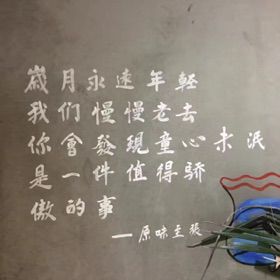 歲月永遠年輕
我们慢慢老去
你會發現童心未泯
是一件值得骄
傲的事
—原味主張